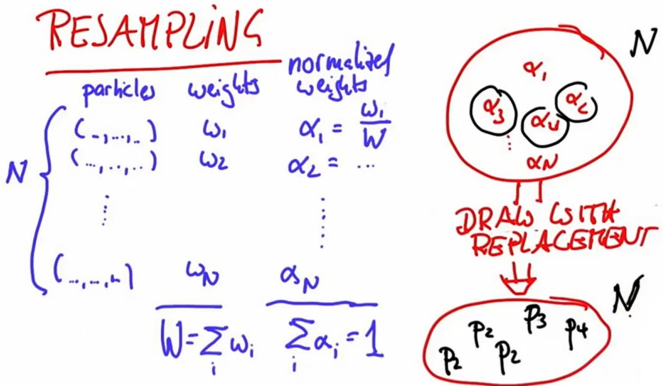 RESAMPLING
particles weights normalized weights
N
(...,...,..) w₁ α₁ = w₁/W
(...,..,..) w₂ α₂ = ...
(...,...,..) w_N α_N
W = Σᵢ wᵢ Σᵢ αᵢ = 1
N
α₁
α₃ α₄ α₂
α_N
DRAW WITH
REPLACEMENT
N
p₃
p₂ p₄
p₂ p₂